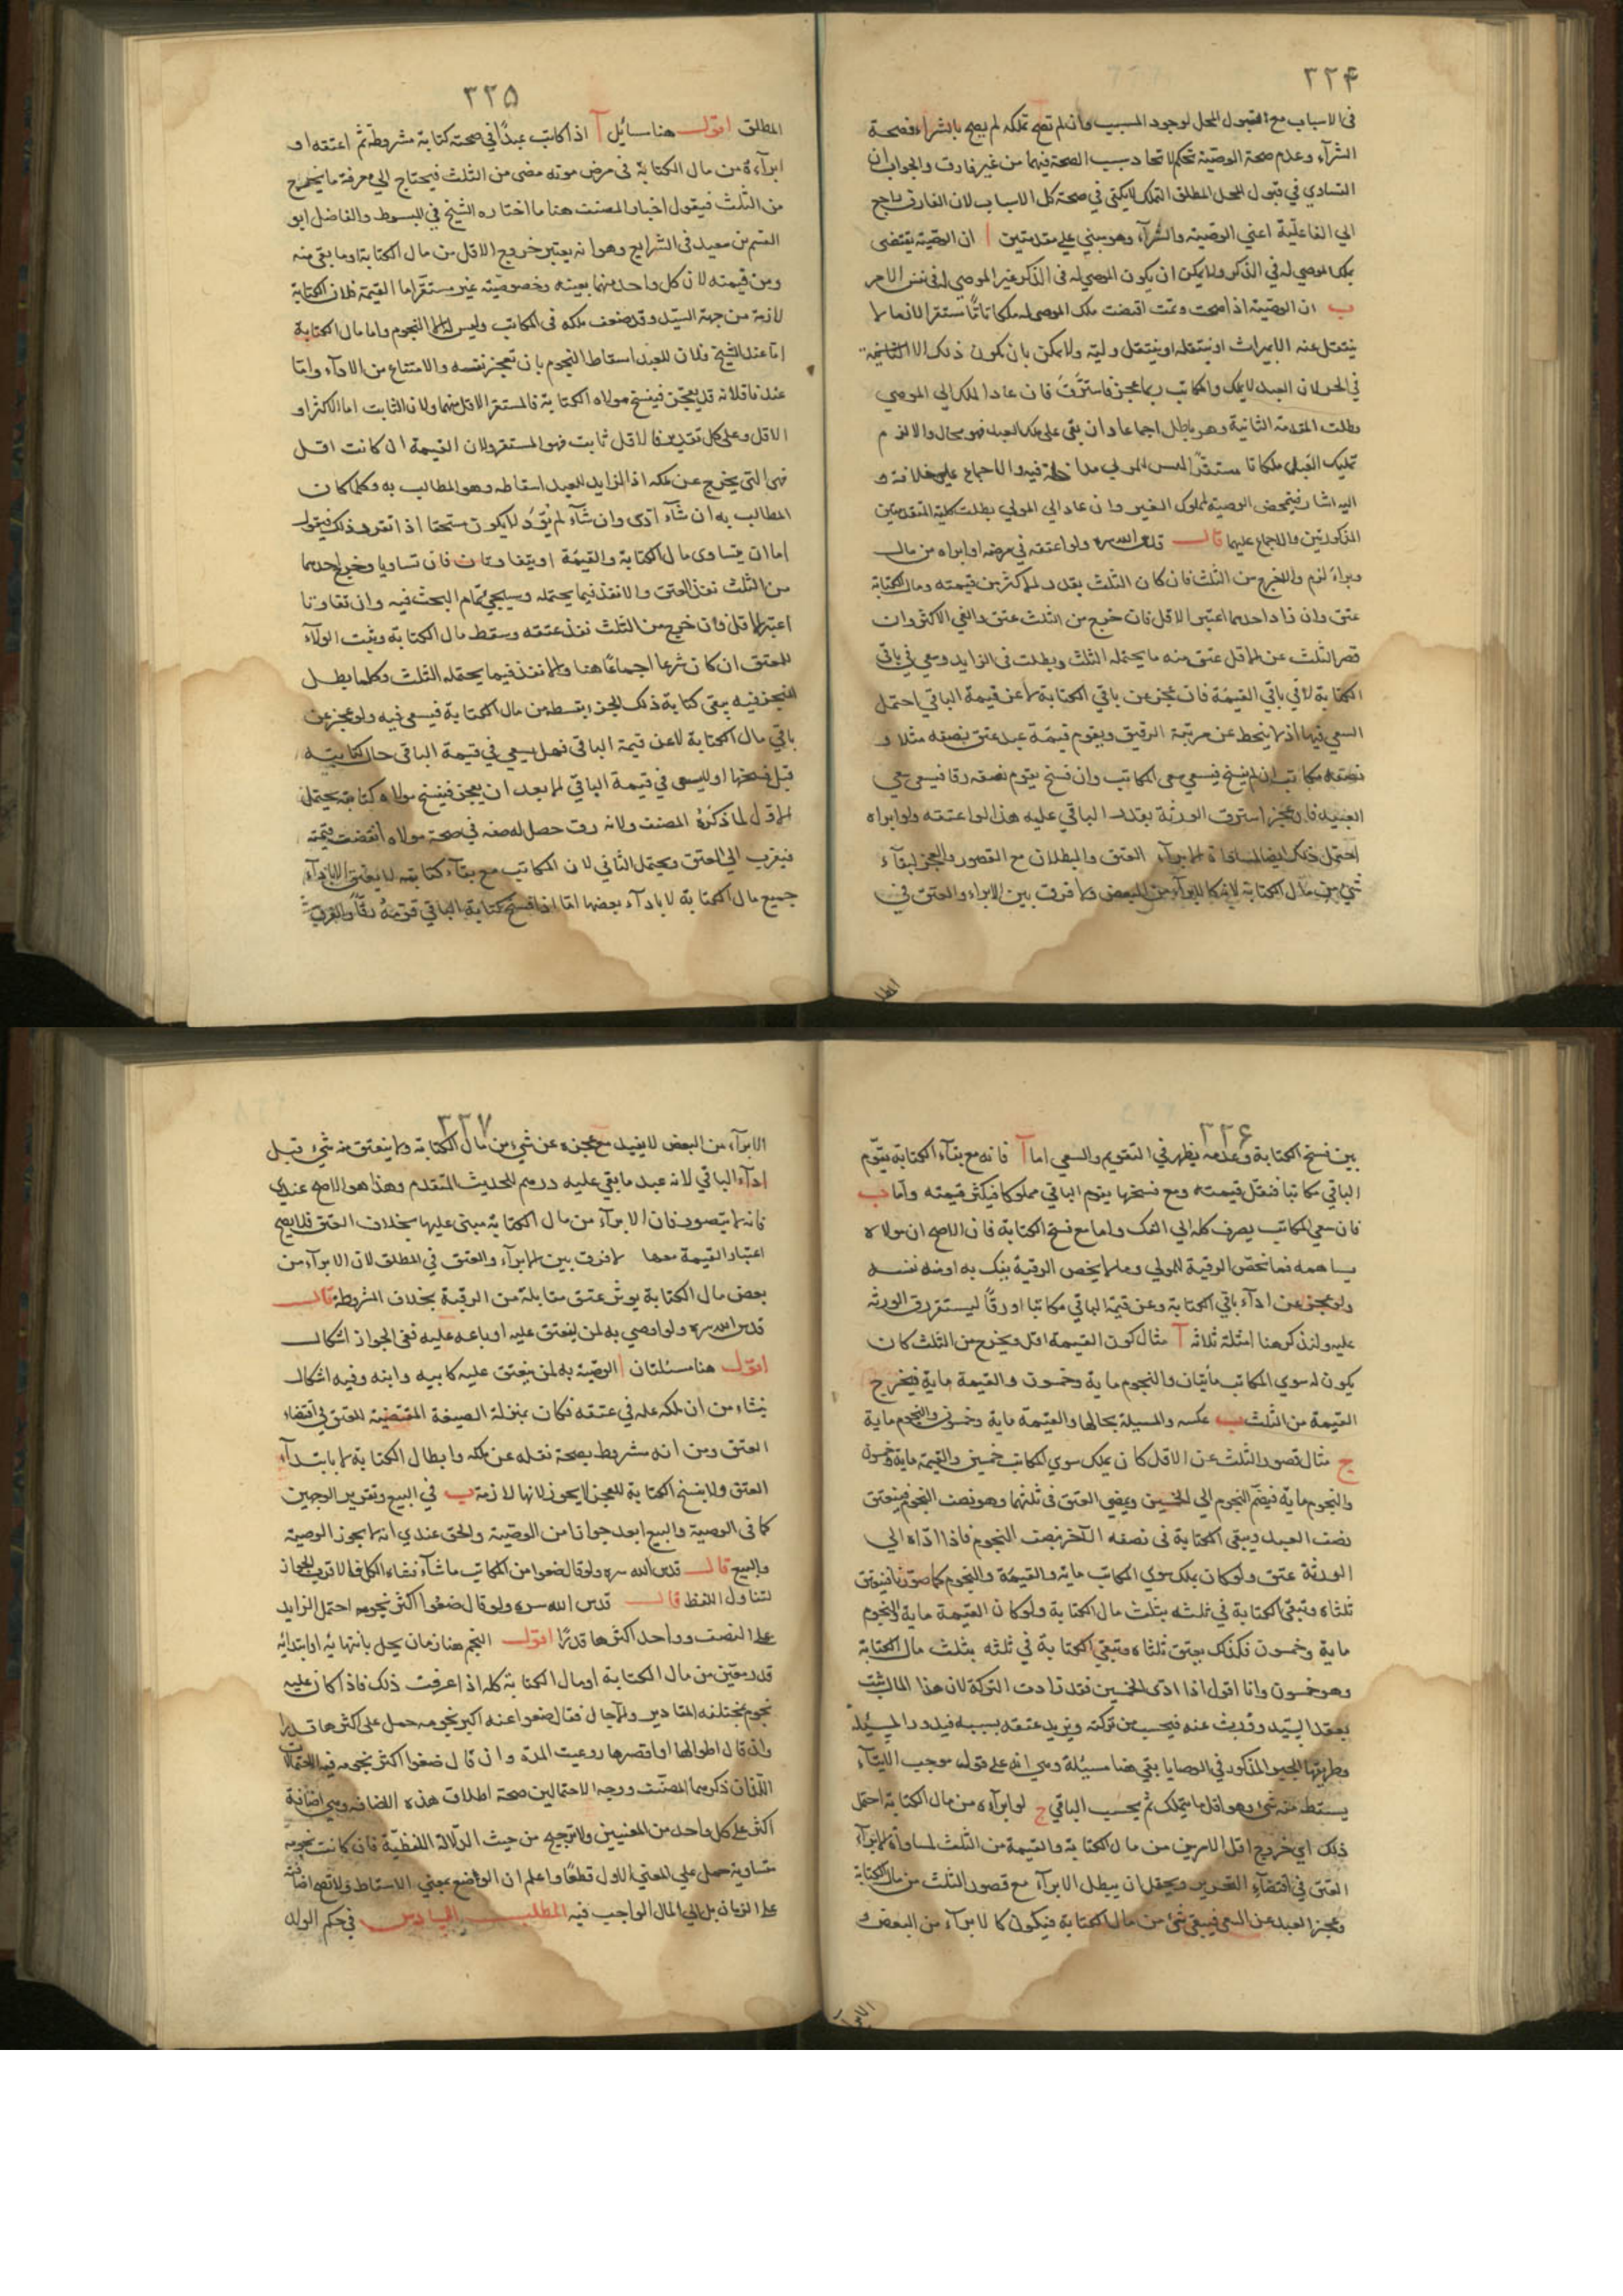 ٣٢۴
فى الاسباب مع القبول المحل لوجود المسبب وان لم تصح تملكه لم يصح بالشراء فصحة
الشرآء وعدم صحة الوصية تحكم لاتحاد سبب الصحة فيهما من غير فارق والجواب ان
التساوي في قبول المحل المطلق التملك لا يكفى في صحة كل الاسباب لان الفارق راجع
الي الفاعلية اعني الوصية والشرآء وهو مبني علي مقدمتين ا ان الوصية يقتضى
ملك الموصى له في الذكر ولا يمكن ان يكون الموصى له فى الذكر غير الموصي له في نفس الامر
ب ان الوصية اذا صحت وتمت اقتضت ملك الموصى له ملكا تاما مستقرا لانها ما
ينتقل عنه الا بميراث او ينتقله او ينتقل وليه ولا يمكن بان يكون ذلك الا
في الحر لان العبد لا يملك والمكاتب ربما عجز فاسترق فان عاد الملك الي الموصي
بطلت المقدمة الثانية وهو باطل اجماعا وان بقى على ملك العبد فهو محال والا لزم
تمليك العبد ملكا تاما مستقرا ليس للمولي مداخلة فيه والاجماع علي خلافه و
اليه اشار بتمحض الوصية لمملوك الغير وان عاد الي المولي بطلت كلية المقدمتين
المذكورتين والاجماع عليهما قال قدس الله سره ولو اعتقه في مرضه او ابراه من مال
وبراء لزم والا خرج من الثلث فان كان الثلث بقدر الاكثر من قيمته ومال الكتابة
عتق وان زاد احدهما اعتبر الاقل فان خرج من الثلث عتق والغي الاكثر وان
قصر الثلث عن الاقل عتق منه ما يحتمله الثلث وبطلت فى الزايد وسعي في باقي
الكتابة لا في باقي القيمة فان عجز عن باقي الكتابة لا عن قيمة الباقي احتمل
السعي فيها اذ لا ينحط عن مرتبة الرقيق ويقوم قيمة عبد عتق نصفه مثلا و
نصفه مكاتب ان لم يفسخ فيسعي سعى المكاتب وان فسخ يقوم نصفه رقا فيسعى سعي
العبيد فان عجز استرق الورثة بقدر الباقي عليه هذا لو اعتقه ولو ابراه
احتمل ذلك ايضا لمساواة الابرآء العتق والبطلان مع القصور والعجز لبقآء
شئ من مال الكتابة لانه كالابرآء من البعض ولا فرق بين الابراء والعتق في
المطا
٣٢۵
المطلق اقول هنا مسائل آ اذا كاتب عبدًا في صحته كتابة مشروطة ثم اعتقه او
ابرآءه من مال الكتابة فى مرض موته مضى من الثلث فيحتاج الي معرفة ما يخرج
من الثلث فيقول اختيار المصنف هنا ما اختاره الشيخ في المبسوط والفاضل ابو
القسم بن سعيد فى الشرايع وهو انه يعتبر خروج الاقل من مال الكتابة او ما بقى منه
ومن قيمته لان كل واحد منهما بعينه وخصوصيته غير مستقر اما القيمة فلان الكتابة
لازمة من جهة السيد وقد ضعف ملكه فى المكاتب وليس له الا النجوم واما مال الكتابة
اما عند الشيخ فلان للعبد اسقاط النجوم بان تعجز نفسه والامتناع من الادآء واما
عندنا فلانه قد يعجز فيفسخ مولاه الكتابة فالمستقر الاقل منهما ولان الثابت اما الاكثر او
الاقل وعلى كل تقدير فالاقل ثابت فهو المستقر ولان القيمة ان كانت اقل
فهى التي يخرج عن ملكه اذ الزايد للعبد اسقاطه وهو المطالب به وكلما كان
المطالب به ان شآء ادى وان شآء لم يؤد لا يكون مستحقا اذا تقرر ذلك فيقول
اما ان يتساوى مال الكتابة والقيمة او يتفاوتان فان تساويا وخرج احدهما
من الثلث نفذ العتق والا نفذ فيما يحتمله وسيجئ تمام البحث فيه وان تفاوتا
اعتبر الاقل فان خرج من الثلث نفذ عتقه وسقط مال الكتابة وثبت الولآء
للمعتق ان كان شرعا اجماعًا هنا والا نفذ فيما يحتمله الثلث وكلما بطل
التنجيز فيه يبقى كتابة ذلك الجزء بقسطه من مال الكتابة فيسعى فيه ولو عجز عن
باقي مال الكتابة لا عن قيمة الباقي فهل يسعي في قيمة الباقى حال كتابته
قبل فسخها او ليسعى في قيمة الباقي الا بعد ان يعجز فيفسخ مولاه كتابته يحتمل
الاول لما ذكره المصنف ولانه رق حصل له صفة في صحة مولاه اقتضت قيمته
فيقرب الي العتق ويحتمل الثاني لان المكاتب مع بقآء كتابته لا يعتق الا باداء
جميع مال الكتابة لا بادآء بعضها اما اذا فسخ كتابة الباقي قومه رقًا والفرق
٣٢۶
بين فسخ الكتابة وعدمه يظهر في التقويم والسعى اما آ فانه مع بقآء الكتابة يقوم
الباقي مكاتبا فتقل قيمته ومع فسخها يقوم الباقي مملوكا فيكثر قيمته واما ب
فان سعي المكاتب يصرف كله الي الفك واما مع فسخ الكتابة فان الاصح ان مولاه
يساهمه فما تخص الرقية للمولي وما لا يخص الرقية بفك به او منه نفسه
ولو عجز عن ادآء باقي الكتابة وعن قيمة الباقي مكاتبا او رقًا ليستقر رق الورثة
عليه ولنذكر هنا امثلة ثلاثة آ مثال كون القيمة اقل ويخرج من الثلث كان
يكون له سوي المكاتب مأيتان والنجوم ماية وخمسون والقيمة ماية فيخرج
القيمة من الثلث ب عكسه والمسيلة بحالها والقيمة ماية وخمسون والنجوم ماية
ج مثال قصور الثلث عن الاقل كان يملك سوي المكاتب خمسين والقيمة ماية وخمسون
والنجوم ماية فيضم النجوم الي الخمسين ويمضى العتق فى ثلثهما وهو نصف النجوم فينعتق
نصف العبد ويبقى الكتابة فى نصفه الآخر بنصف النجوم فاذا اداه الي
الورثة عتق ولو كان يملك سوى المكاتب ماية والقيمة والنجوم كما صورنا فيعتق
ثلثاه وتبقى الكتابة في ثلثه بثلث مال الكتابة ولو كان القيمة ماية والنجوم
ماية وخمسون فكذلك يعتق ثلثاه وتبقي الكتابة في ثلثه بثلث مال الكتابة
وهو خمسون وانا اقول اذا ادى الخمسين فقد زادت التركة لان هذا المال يثبت
بعقد السيد وورث عنه فيحسب من تركته ويزيد عتقه بسببه فيدور المسئلة
وطريقها الجبر المذكور في الوصايا بقي هنا مسيلة وهي انه على قوله موجب الايتآء
يسقط منه شئ وهو اقل ما يتملك ثم يحسب الباقي ج لو ابرآءه من مال الكتابة احتمل
ذلك اي خروج اقل الامرين من مال الكتابة والقيمة من الثلث لمساواة الابرآء
العتق في اقتضآء التحرير ويحتمل ان يبطل الابرآء مع قصور الثلث من مال الكتابة
وعجز العبد عن السعى فيبقى شئ من مال الكتابة فيكون كالابرآء من البعض و
الابرآ
٣٢٧
الابرآء من البعض لا يفيد مع عجزه عن شئ من مال الكتابة ولا ينعتق منه شئ قبل
ادآء الباقي لانه عبد ما بقي عليه درهم للحديث المتقدم وهذا هو الاصح عندي
فانه لا يتصور فان الابرآء من مال الكتابة مبنى عليها بخلاف العتق فلا يصح
اعتبار القيمة معها لا فرق بين الابرآء والعتق في المطلق لان الابرآء من
بعض مال الكتابة يوثر عتق مقابلة من الرقبة بخلاف المشروطة قال
قدس الله سره ولو اوصى به لمن ينعتق عليه او باعه عليه ففى الجواز اشكال
اقول هنا مسئلتان ا الوصية به لمن ينعتق عليه كابيه وابنه وفيه اشكال
ينشاء من ان ملكه علة في عتقه فكان بمنزلة الصيغة المقتضية للعتق في اقتضاء
العتق ومن انه مشروط بصحة نقله عن ملكه وابطال الكتابة لا بابتدآء
العتق ولا يفسخ الكتابة للعجز لا يجوز لانها لازمة ب في البيع وتقرير الوجهين
كما فى الوصية والبيع ابعد جوازا من الوصية والحق عندي انه لا يجوز الوصية
والبيع قال قدس الله سره ولو قال ضعوا من المكاتب ما شآء فشاء الكل فالاقرب الجواز
لتناول اللفظ قال قدس الله سره ولو قال ضعوا اكثر نجومه احتمل الزايد
على النصف وواحد اكثرها قدرًا اقول النجم هنا زمان يحل بانتهائه او ابتدائه
قدر معين من مال الكتابة او مال الكتابة كله اذا عرفت ذلك فاذا كان عليه
نجوم مختلفة المقادير والآجال فقال ضعوا عنه اكبر نجومه حمل على اكثرها قدرا
وان قال اطوالها او اقصرها روعيت المدة وان قال ضعوا اكثر نجومه فيه الاحتمالان
اللذان ذكرهما المصنف ووجه الاحتمالين صحة اطلاق هذه اللضافة وهي اضافة
اكثر على كل واحد من المعنيين ولا ترجيح من حيث الدلالة اللفظية فان كانت نجومه
متساوية حمل علي المعني الاول قطعًا واعلم ان الوضع بمعني الاسقاط ولا تصح اضافته
على الزمان بل الي المال الواجب فيه المطلب السادس في حكم الولد